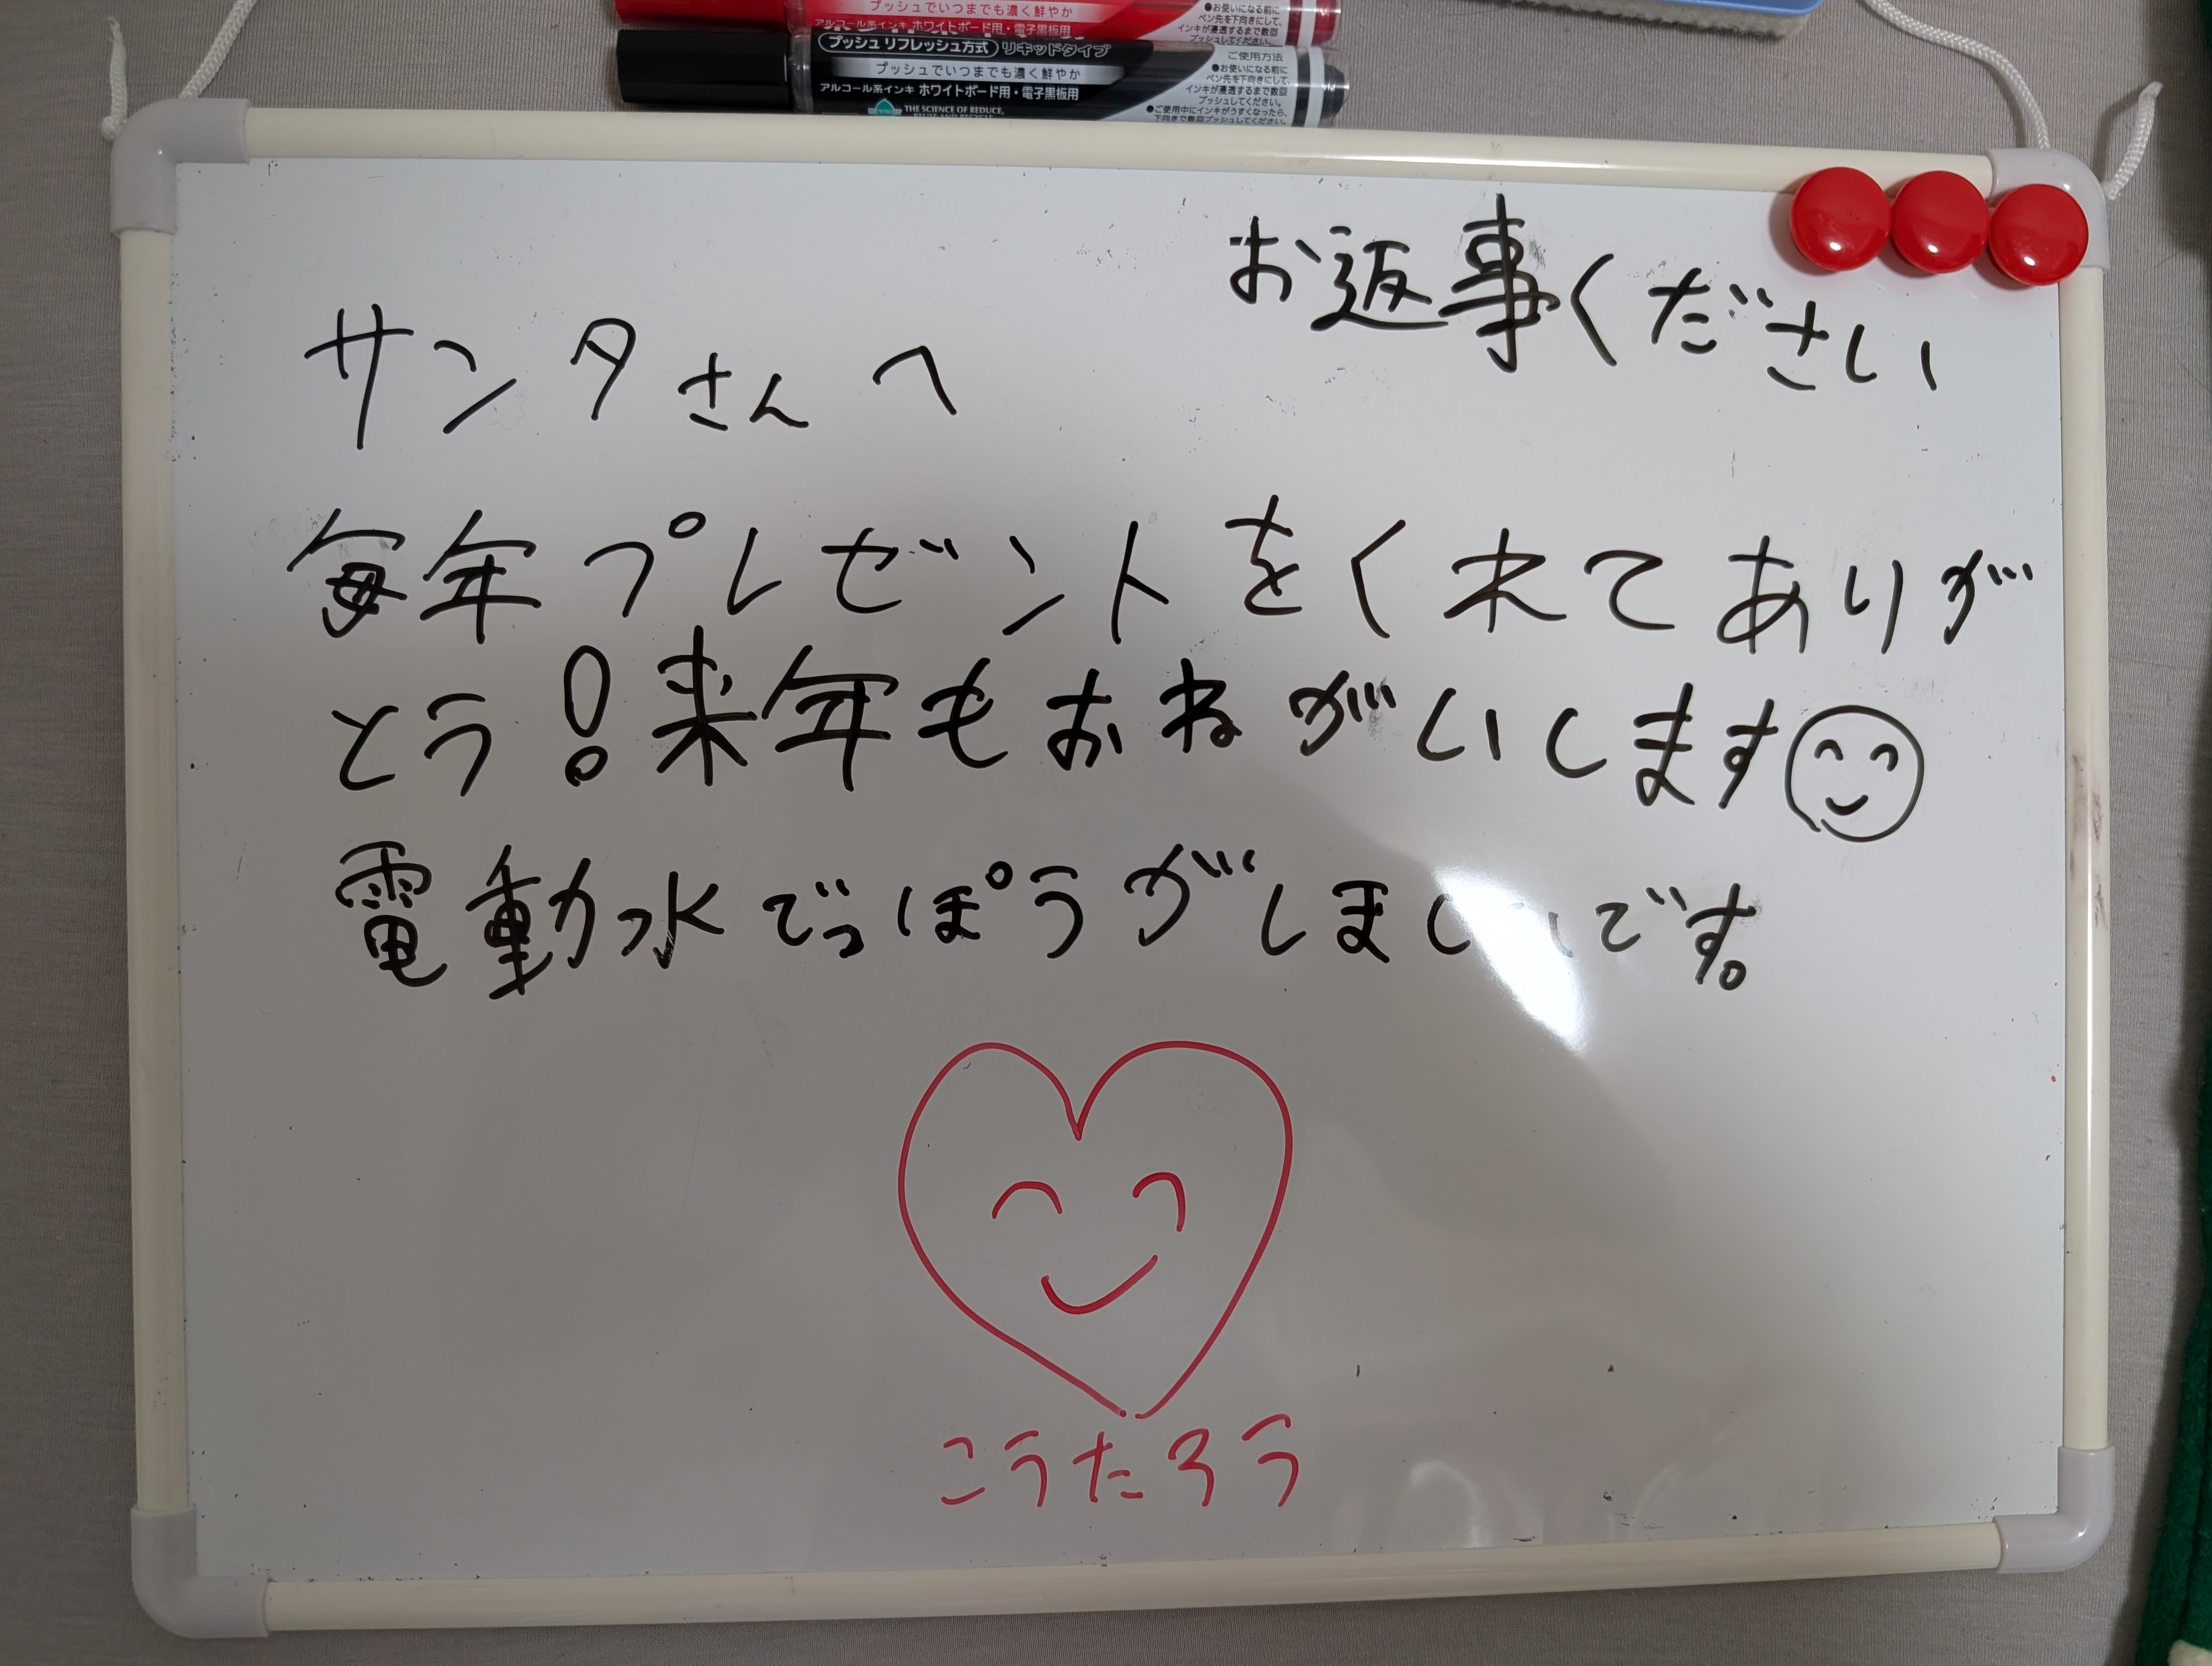 プッシュでいつまでも濃く鮮やか
アルコール系インキ ホワイトボード用・電子黒板用
●お使いになる前に
ペン先を下向きにして、
インキが浸透するまで数回
プッシュしてください。
プッシュ リフレッシュ方式 リキッドタイプ
プッシュでいつまでも濃く鮮やか
アルコール系インキ ホワイトボード用・電子黒板用
THE SCIENCE OF REDUCE,
REUSE AND RECYCLE
ご使用方法
●お使いになる前に
ペン先を下向きにして、
インキが浸透するまで数回
プッシュしてください。
●ご使用中にインキがうすくなったら、
下向きで数回プッシュしてください。
お返事ください
サンタさんへ
毎年プレゼントをくれてありが
とう!来年もおねがいします
電動水でっぽうがしまし です。
こうたろう